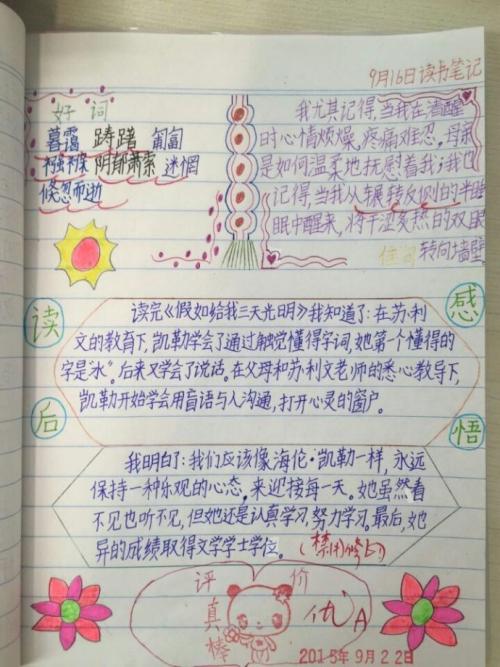 9月16日读书笔记
好词
暮霭 踌躇 匍匐
阴郁萧索 迷惘
倏忽而逝
我尤其记得,当我在清醒
时心情烦燥,疼痛难忍。母亲
是如何温柔地抚慰着我;我也
记得,当我从辗转反侧的半睡
眠中醒来,将干涩炙热的双眼
佳词 转向墙壁
读后
感悟
读完《假如给我三天光明》我知道了:在苏·利
文的教育下,凯勒学会了通过触觉懂得字词,她第一个懂得的
字是“水”。后来又学会了说话。在父母和苏·利文老师的悉心教导下,
凯勒开始学会用盲语与人沟通,打开心灵的窗户。
我明白了:我们应该像海伦·凯勒一样,永远
保持一种乐观的心态,来迎接每一天。她虽然看
不见也听不见,但她还是认真学习,努力学习。最后,她
异的成绩取得文学学士学位。
评价
真棒
优A
2015年9月22日